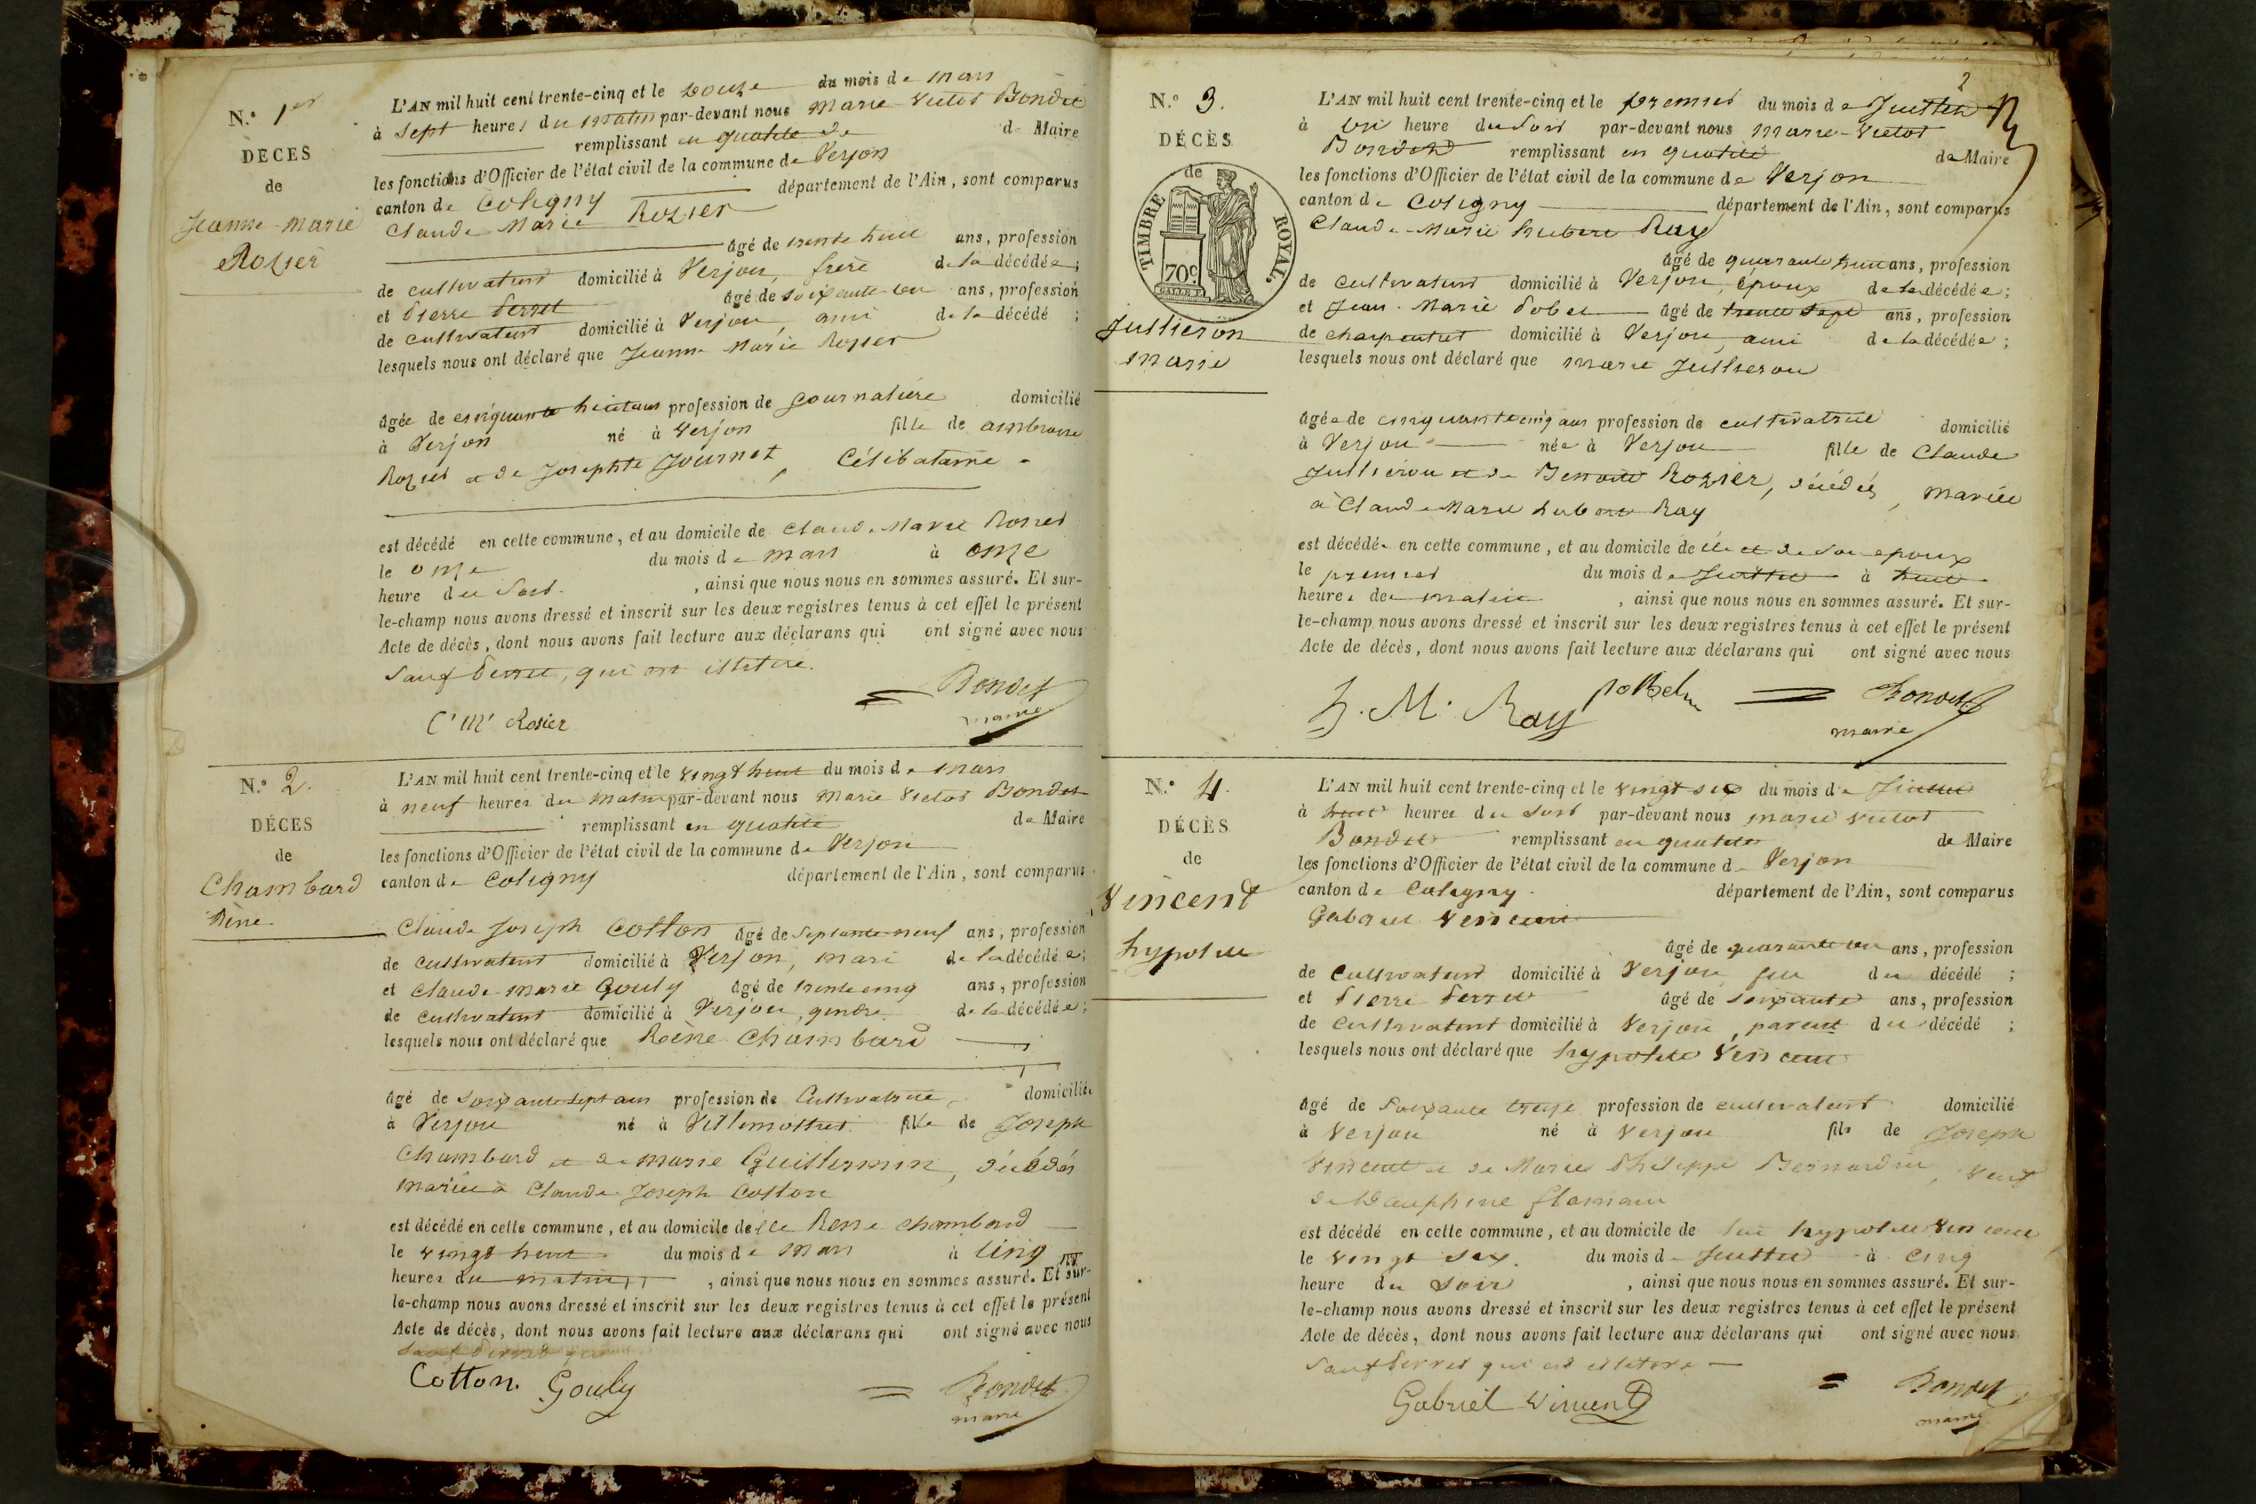 N.° 1er
DÉCES
de
Jeanne-marie
Rozier
L'AN mil huit cent trente-cinq et le douze du mois de mars
à sept heures du matin par-devant nous Marie-Victor Bondet
remplissant en qualité de de Maire
les fonctions d'Officier de l'état civil de la commune de Verjon
canton de Coligny département de l'Ain, sont comparus
Claude Marie Rozier
âgé de trente huit ans, profession
de cultivateur domicilié à Verjon, frère de la décédée;
et Pierre Perret âgé de soixante un ans, profession
de cultivateur domicilié à Verjon, ami de la décédé ;
lesquels nous ont déclaré que Jeanne Marie Rozier
âgée de cinquante huit ans profession de journalière domicilié
à Verjon né à Verjon fille de ambroise
Rozier et de Josephte Journet, Célibataire
est décédé en cette commune, et au domicile de Claude Marie Rozier
le onze du mois de mars à onze
heure du soir. , ainsi que nous nous en sommes assuré. Et sur-
le-champ nous avons dressé et inscrit sur les deux registres tenus à cet effet le présent
Acte de décès, dont nous avons fait lecture aux déclarans qui ont signé avec nous
sauf Perret, qui est illitéré.
Bondet
maire
C' M' Rosier
N.° 2.
DÉCES
de
Chambard
Rène
L'AN mil huit cent trente-cinq et le vingt huit du mois de mars
à neuf heures du matin par-devant nous Marie Victor Bondet
remplissant en qualité de Maire
les fonctions d'Officier de l'état civil de la commune de Verjon
canton de Coligny département de l'Ain, sont comparus
Claude Joseph Cotton âgé de septante neuf ans, profession
de cultivateur domicilié à Verjon, mari de la décédée;
et Claude Marie Gouly âgé de trente cinq ans, profession
de cultivateur domicilié à Verjon, gendre de la décédée;
lesquels nous ont déclaré que Rène Chambard
âgé de soixante sept ans profession de Cultivatrice, domiciliée
à Verjon né à Villemottier fille de Joseph
Chambard et de marie Guillermin, décédés
mariée à Claude Joseph Cotton
est décédé en cette commune, et au domicile de elle Rene chambard
le vingt huit du mois de mars à cinq
heures du matin , ainsi que nous nous en sommes assuré. Et sur-
le-champ nous avons dressé et inscrit sur les deux registres tenus à cet effet le présent
Acte de décès, dont nous avons fait lecture aux déclarans qui ont signé avec nous
sauf Perret
Cotton. Gouly
Bondet
maire
2
N.° 3.
DÉCÈS
de
TIMBRE ROYAL
70c
Jullieron
marie
L'AN mil huit cent trente-cinq et le premier du mois de Juillet
à une heure du soir par-devant nous Marie-Victor
Bondet remplissant en qualité de Maire
les fonctions d'Officier de l'état civil de la commune de Verjon
canton de Coligny département de l'Ain, sont comparus
Claude-Marie hubert Ray
âgé de quarante huit ans, profession
de cultivateur domicilié à Verjon, époux de la décédée;
et Jean-Marie Pobel âgé de trente sept ans, profession
de charpentier domicilié à Verjon, ami de la décédée;
lesquels nous ont déclaré que marie Jullieron
âgée de cinquante cinq ans profession de cultivatrice domicilié
à Verjon née à Verjon fille de Claude
Jullieron et de Benoite Rozier, décédés, mariée
à Claude Marie hubert Ray
est décédée en cette commune, et au domicile de elle et de son epoux
le premier du mois de Juillet à huit
heures de matin , ainsi que nous nous en sommes assuré. Et sur-
le-champ nous avons dressé et inscrit sur les deux registres tenus à cet effet le présent
Acte de décès, dont nous avons fait lecture aux déclarans qui ont signé avec nous
h. M. Ray pobel
Bondet
maire
N.° 4.
DÉCÈS
de
Vincent
hypolite
L'AN mil huit cent trente-cinq et le vingt six du mois de Juillet
à huit heures du soir par-devant nous marie victor
Bondet remplissant en qualité de Maire
les fonctions d'Officier de l'état civil de la commune de Verjon
canton de Coligny département de l'Ain, sont comparus
Gabriel Vincent
âgé de quarante un ans, profession
de cultivateur domicilié à Verjon, fils du décédé ;
et Pierre Perret âgé de soixante ans, profession
de cultivateur domicilié à Verjon, parent du décédé ;
lesquels nous ont déclaré que hypolite Vincent
âgé de soixante treize profession de cultivateur domicilié
à Verjon né à Verjon fils de Joseph
Vincent et de Marie Philippe Bernardin, veuf
de Dauphine flamain
est décédé en cette commune, et au domicile de lui hypolite Vincent
le vingt six. du mois de Juillet à cinq
heure du soir , ainsi que nous nous en sommes assuré. Et sur-
le-champ nous avons dressé et inscrit sur les deux registres tenus à cet effet le présent
Acte de décès, dont nous avons fait lecture aux déclarans qui ont signé avec nous
sauf Perret qui est illitéré
Bondet
maire
Gabriel Vincent